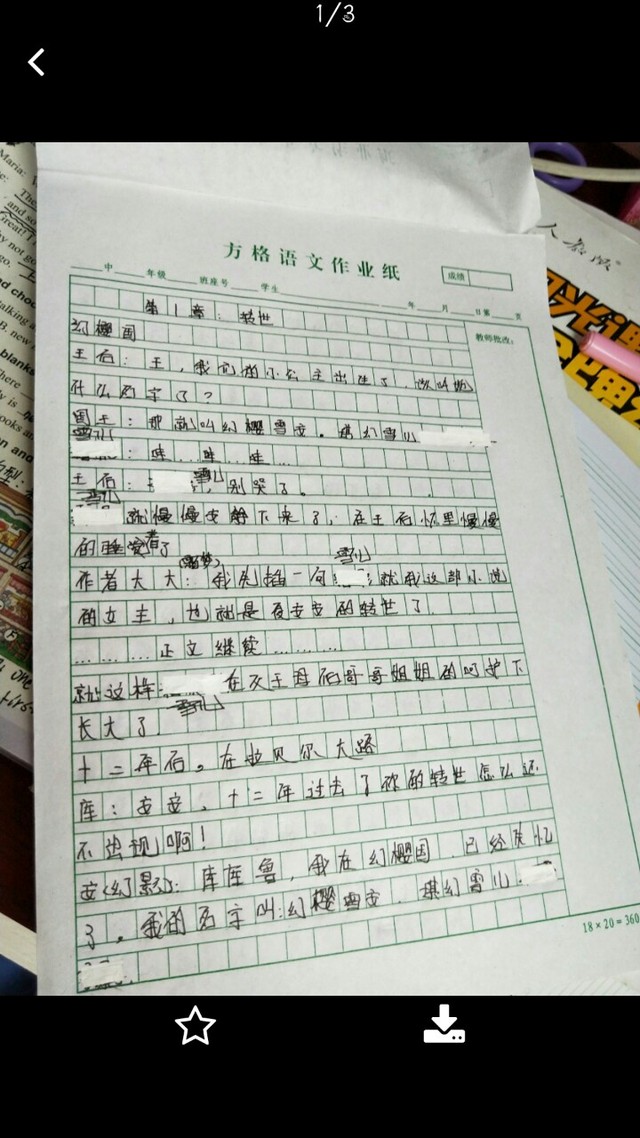 1/3
方格语文作业纸
中 年级 班座号 学生 年 月 日第 页
成绩
教师批改:
第1章:转世
幻樱国
王后:王,我们的小公主出生了,该叫她
什么名字了?
国王:那就叫幻樱雪安。琪幻雪儿
雪儿:哇…哇…哇…
王后:雪儿,别哭了。
雪儿就慢慢安静下来了,在王后怀里慢慢
的睡着了
作者大大:我先插一句雪儿就我这部小说
的女主,也就是安安的转世了
………正文继续………
就这样:雪儿在父王母后哥哥姐姐的呵护下
长大了.
十二年后。在拉贝尔大路
库:安安,十二年过去了你的转世怎么还
不出现啊!
安(幻影):库库鲁,我在幻樱国,已经失忆
了。我的名字叫:幻樱雪安,琪幻雪儿
18×20=360
Maria:
人教版